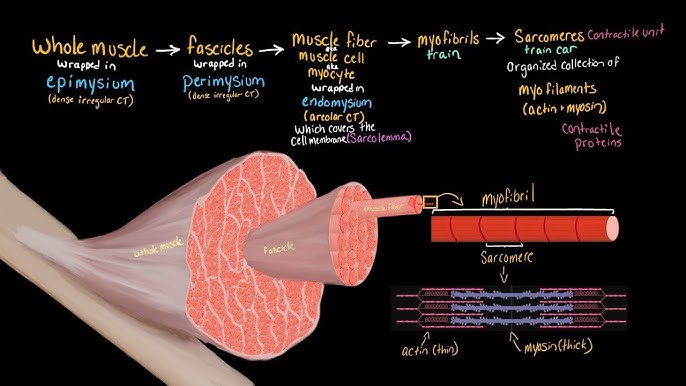 Whole muscle → fascicles → muscle fiber → myofibrils → Sarcomeres contractile unit
wrapped in
epimysium
(dense irregular CT)
wrapped in
perimysium
(dense irregular CT)
aka
muscle cell
aka
myocyte
wrapped in
endomysium
(areolar CT)
which covers the
cell membrane (Sarcolemma)
train
train car
Organized collection of
myofilaments
(actin + myosin)
contractile
proteins
whole muscle
fascicle
muscle fiber
myofibril
Sarcomere
actin (thin)
myosin (thick)